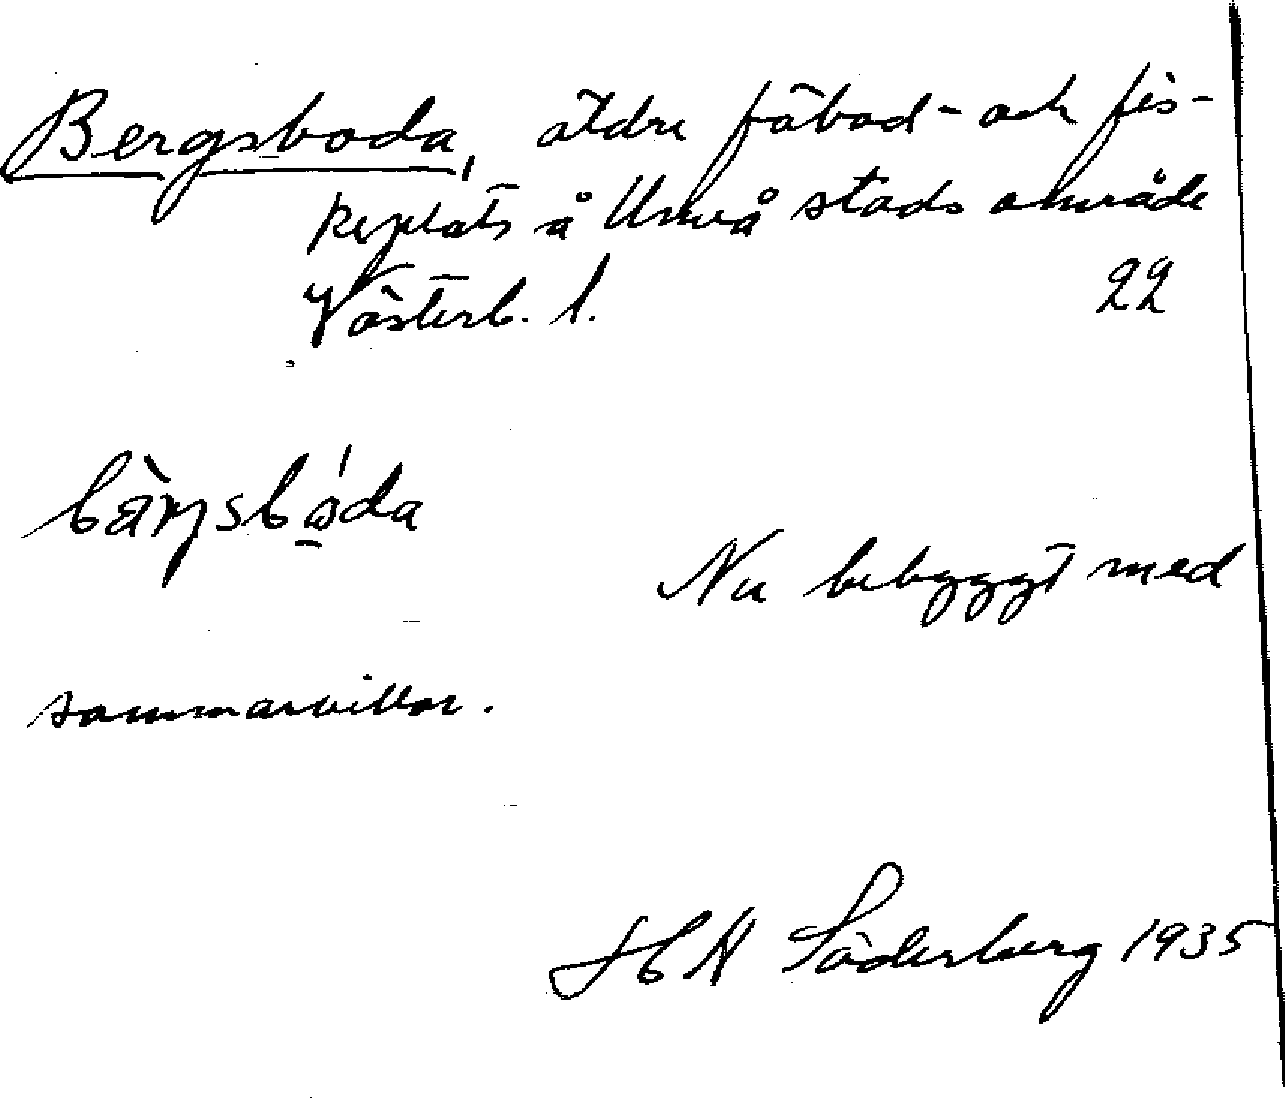 Bergsboda, äldre fäbod- och fis-
keplats å Umeå stads område
Västerb. l. 22
bärjsboda
Nu bebyggt med
sommarvillor.
H A Söderberg 1935